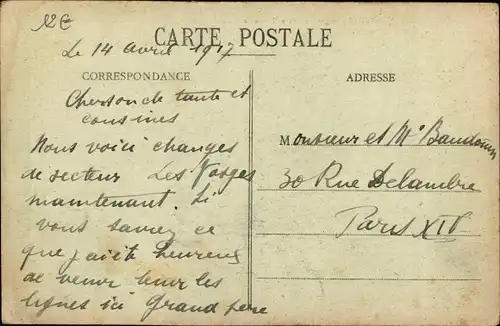 12€
Le 14 avril 1917
CARTE POSTALE
CORRESPONDANCE
ADRESSE
Cher oncle tante et
cousines
Nous voici changes
de secteur Les Vosges
maintenant. Si
vous saurez ce
que j'ai été heureux
de venir tenir les
lignes ici Grand père
Monsieur et Mᵉ Baudouin
30 Rue Delambre
Paris XIV